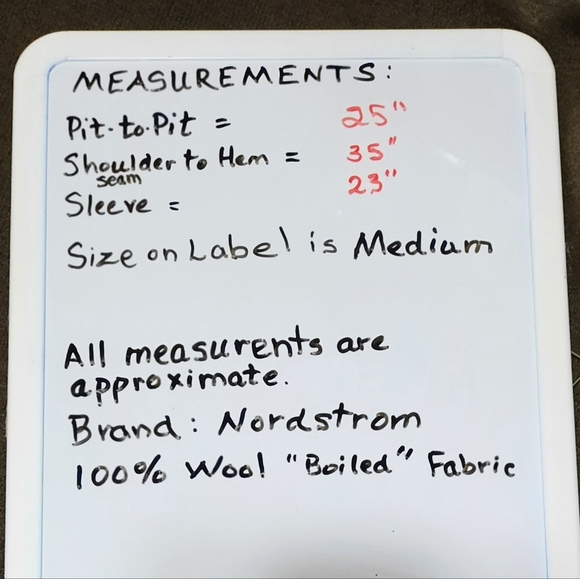 MEASUREMENTS:
Pit-to-Pit = 25"
Shoulder to Hem = 35"
seam
Sleeve = 23"
Size on Label is Medium
All measurents are
approximate.
Brand: Nordstrom
100% Wool "Boiled" Fabric